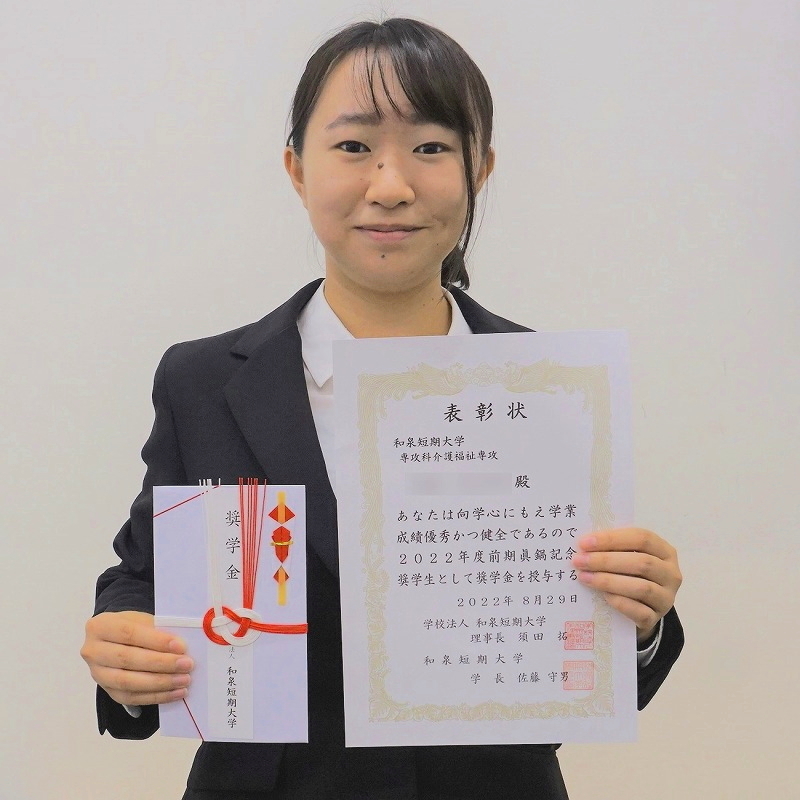 表彰状
和泉短期大学
専攻科介護福祉専攻
殿
あなたは向学心にもえ学業
成績優秀かつ健全であるので
2022年度前期眞鍋記念
奨学生として奨学金を授与する
2022年 8月29日
学校法人 和泉短期大学
理事長 須田 拓
和泉短期大学
学長 佐藤守男
奨学金
和泉短期大学